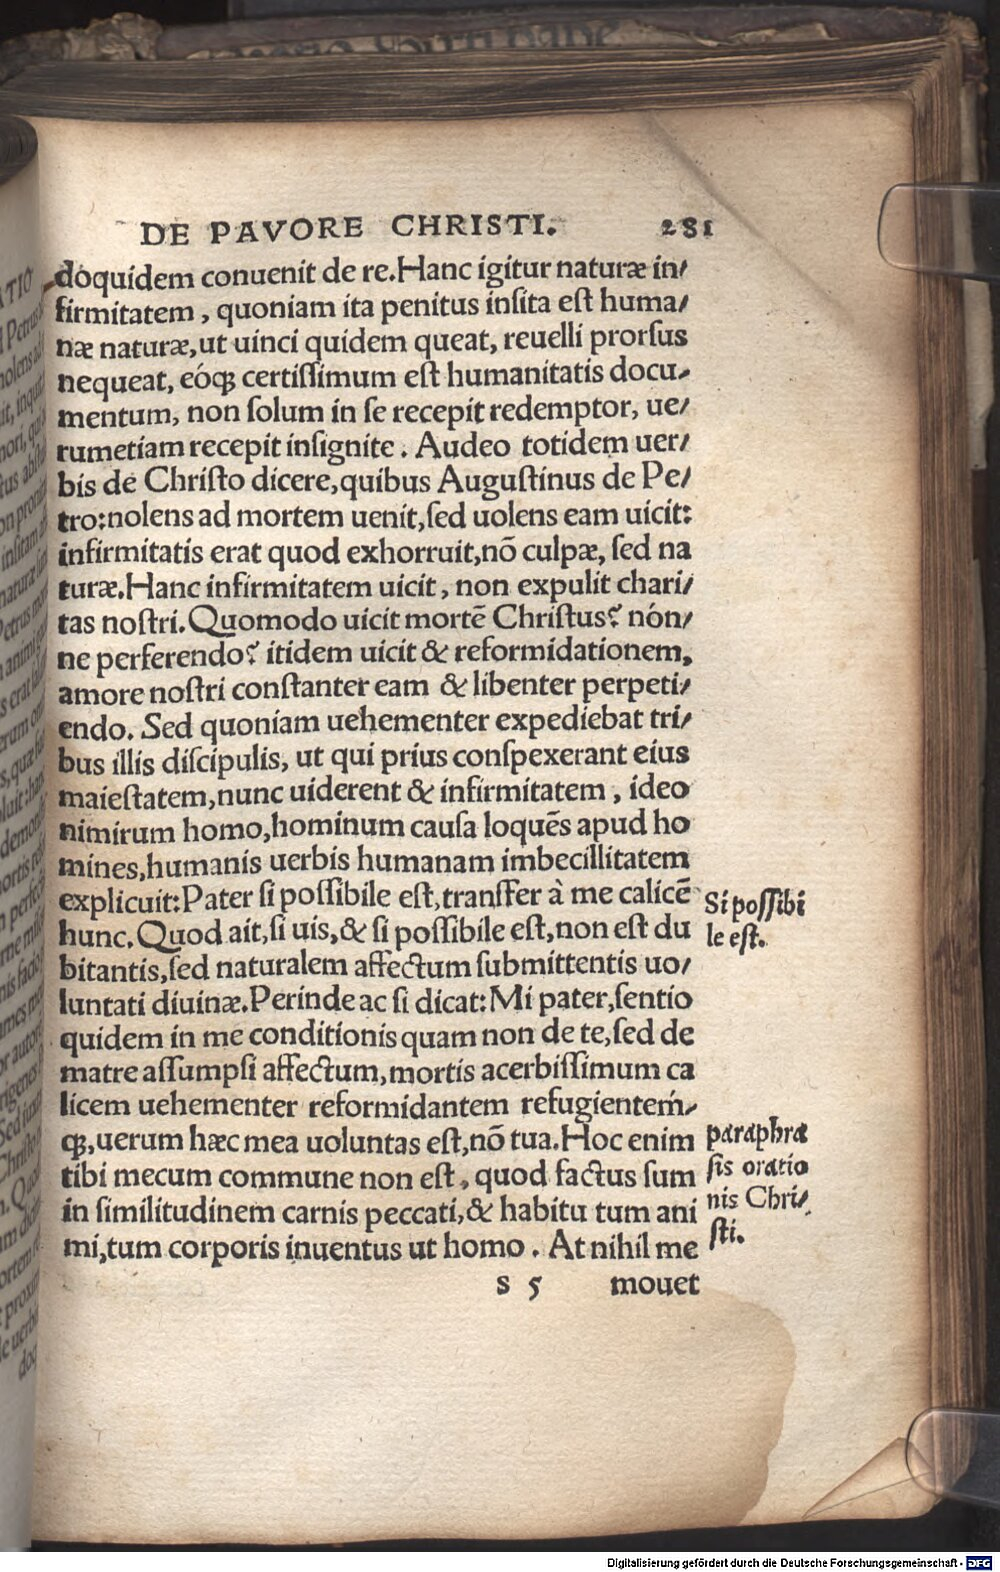 DE PAVORE CHRISTI. 281
doquidem conuenit de re. Hanc igitur naturæ in/
firmitatem, quoniam ita penitus inſita eſt huma/
næ naturæ, ut uinci quidem queat, reuelli prorſus
nequeat, eóq́; certiſſimum eſt humanitatis docu-
mentum, non ſolum in ſe recepit redemptor, ue/
rumetiam recepit inſignite. Audeo totidem uer/
bis de Chriſto dicere, quibus Auguſtinus de Pe/
tro: nolens ad mortem uenit, ſed uolens eam uicit:
infirmitatis erat quod exhorruit, nō culpæ, ſed na
turæ. Hanc infirmitatem uicit, non expulit chari/
tas noſtri. Quomodo uicit mortē Chriſtus? nón/
ne perferendo? itidem uicit & reformidationem,
amore noſtri conſtanter eam & libenter perpeti/
endo. Sed quoniam uehementer expediebat tri/
bus illis diſcipulis, ut qui prius conſpexerant eius
maieſtatem, nunc uiderent & infirmitatem, ideo
nimirum homo, hominum cauſa loquēs apud ho
mines, humanis uerbis humanam imbecillitatem
explicuit: Pater ſi poſſibile eſt, tranſfer à me calicē
hunc. Quod ait, ſi uis, & ſi poſſibile eſt, non eſt du
bitantis, ſed naturalem affectum ſubmittentis uo/
luntati diuinæ. Perinde ac ſi dicat: Mi pater, ſentio
quidem in me conditionis quam non de te, ſed de
matre aſſumpſi affectum, mortis acerbiſſimum ca
licem uehementer reformidantem refugientem/
q́;, uerum hæc mea uoluntas eſt, nō tua. Hoc enim
tibi mecum commune non eſt, quod factus ſum
in ſimilitudinem carnis peccati, & habitu tum ani
mi, tum corporis inuentus ut homo. At nihil me
s 5 mouet
Si poſſibi
le eſt.
paraphra
ſis oratio
nis Chri/
ſti.
Digitalisierung gefördert durch die Deutsche Forschungsgemeinschaft - DFG